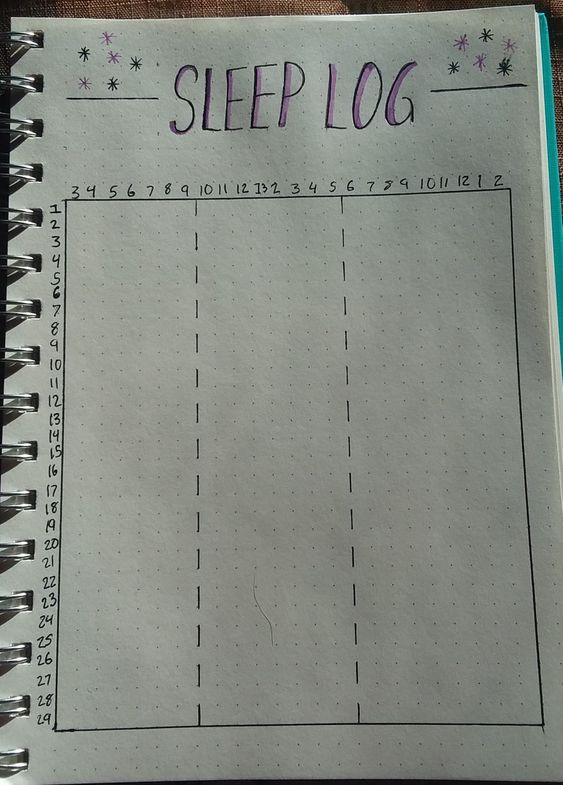 SLEEP LOG
3 4 5 6 7 8 9 10 11 12 13 2 3 4 5 6 7 8 9 10 11 12 1 2
1
2
3
4
5
6
7
8
9
10
11
12
13
14
15
16
17
18
19
20
21
22
23
24
25
26
27
28
29